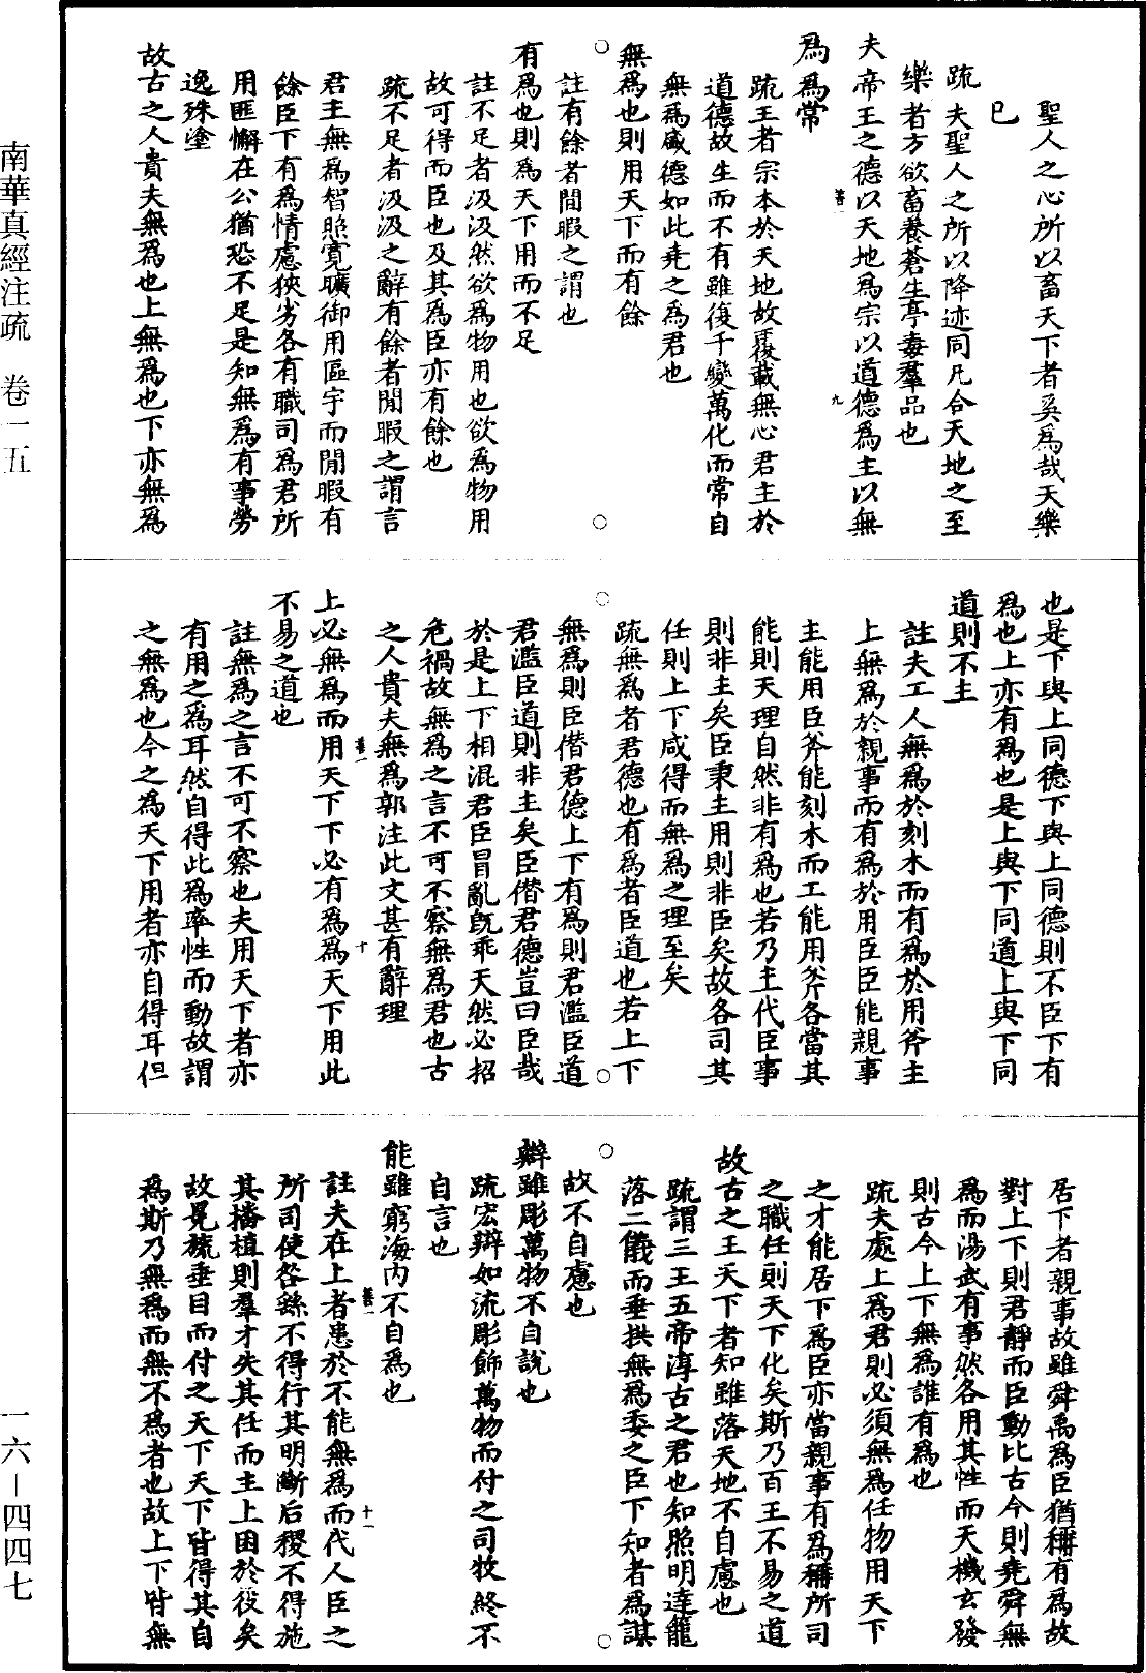 聖人之心所以畜天下者奚為哉天樂
已
疏夫聖人之所以降迹同凡合天地之至
樂者方欲畜養蒼生亭毒羣品也
夫帝王之德以天地為宗以道德為主以無
為為常
疏王者宗本於天地故覆載無心君主於
道德故生而不有雖復千變萬化而常自
無為盛德如此堯之為君也
無為也則用天下而有餘
註有餘者閒暇之謂也
有為也則為天下用而不足
註不足者汲汲然欲為物用也欲為物用
故可得而臣也及其為臣亦有餘也
疏不足者汲汲之辭有餘者閒暇之謂言
君主無為智照寬曠御用區宇而閒暇有
餘臣下有為情慮狹劣各有職司為君所
用匪懈在公猶恐不足是知無為有事勞
逸殊塗
故古之人貴夫無為也上無為也下亦無為
也是下與上同德下與上同德則不臣下有
為也上亦有為也是上與下同道上與下同
道則不主
註夫工人無為於刻木而有為於用斧主
上無為於親事而有為於用臣臣能親事
主能用臣斧能刻木而工能用斧各當其
能則天理自然非有為也若乃主代臣事
則非主矣臣秉主用則非臣矣故各司其
任則上下咸得而無為之理至矣
疏無為者君德也有為者臣道也若上下
無為則臣僭君德上下有為則君濫臣道
君濫臣道則非主矣臣僭君德豈曰臣哉
於是上下相混君臣冒亂既乖天然必招
危禍故無為之言不可不察無為君也古
之人貴夫無為郭注此文甚有辭理
上必無為而用天下下必有為為天下用此
不易之道也
註無為之言不可不察也夫用天下者亦
有用之為耳然自得此為率性而動故謂
之無為也今之為天下用者亦自得耳但
居下者親事故雖舜禹為臣猶稱有為故
對上下則君靜而臣動比古今則堯舜無
為而湯武有事然各用其性而天機玄發
則古今上下無為誰有為也
疏夫處上為君則必須無為任物用天下
之才能居下為臣亦當親事有為稱所司
之職任則天下化矣斯乃百王不易之道
故古之王天下者知雖落天地不自慮也
疏謂三王五帝淳古之君也知照明達籠
落二儀而垂拱無為委之臣下知者為謀
故不自慮也
辯雖彫萬物不自說也
疏宏辯如流彫飾萬物而付之司牧終不
自言也
能雖窮海內不自為也
註夫在上者患於不能無為而代人臣之
所司使咎繇不得行其明斷后稷不得施
其播植則羣才失其任而主上困於役矣
故冕旒垂目而付之天下天下皆得其自
為斯乃無為而無不為者也故上下皆無
南華真經注疏 卷一五
一六—四四七